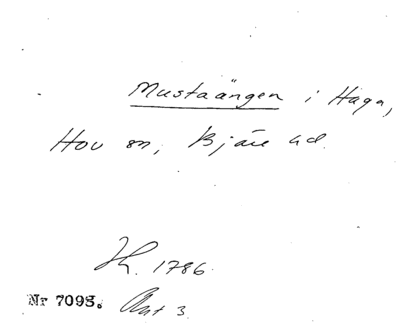 Mustaängen i Haga,
Hov sn, Bjäre hd.
Th. 1786.
Nr 7098. Akt 3